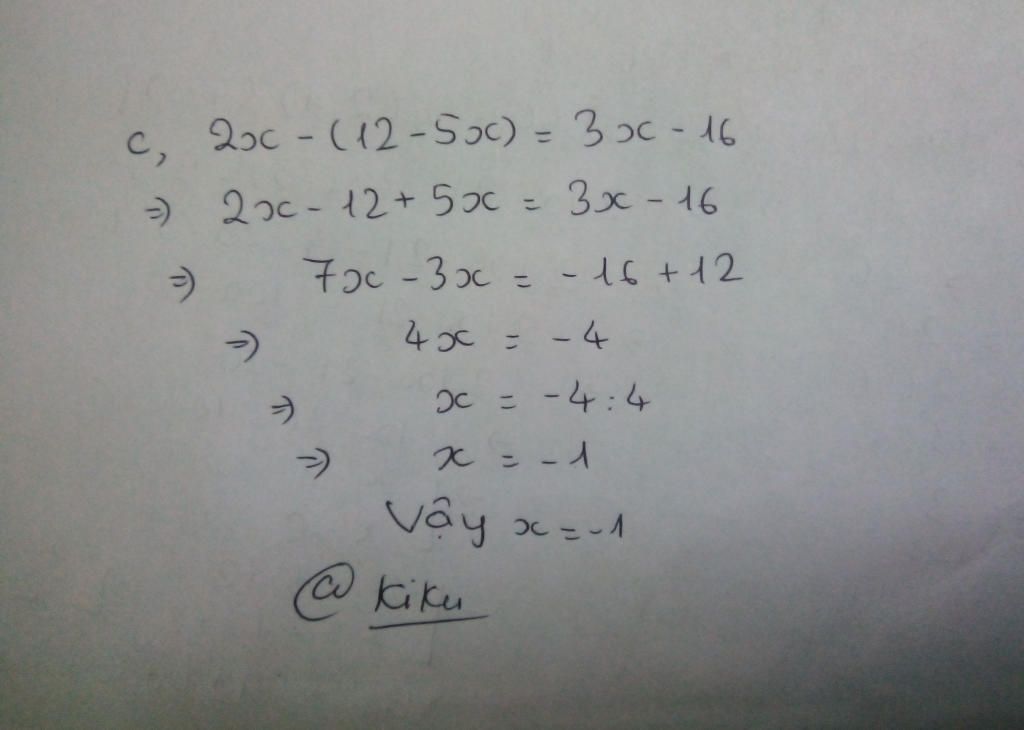 c, 2x - (12 - 5x) = 3x - 16
=) 2x - 12 + 5x = 3x - 16
=) 7x - 3x = -16 + 12
=) 4x = -4
=) x = -4 : 4
=) x = -1
Vậy x = -1
@ Kiku